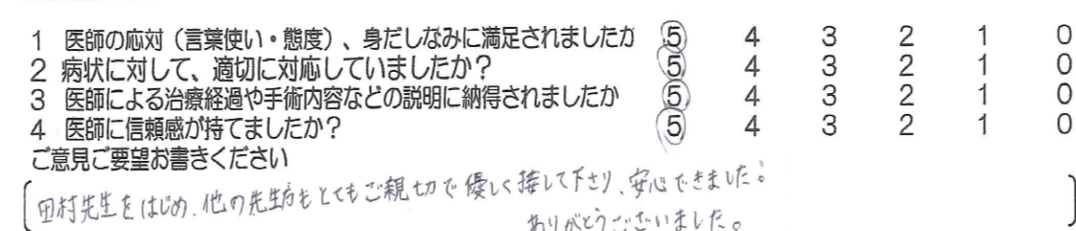 1 医師の応対（言葉使い・態度）、身だしなみに満足されましたか 5 4 3 2 1 0
2 病状に対して、適切に対応していましたか？ 5 4 3 2 1 0
3 医師による治療経過や手術内容などの説明に納得されましたか 5 4 3 2 1 0
4 医師に信頼感が持てましたか？ 5 4 3 2 1 0
ご意見ご要望お書きください
田村先生をはじめ、他の先生方もとてもご親切で優しく接して下さり、安心できました。
ありがとうございました。